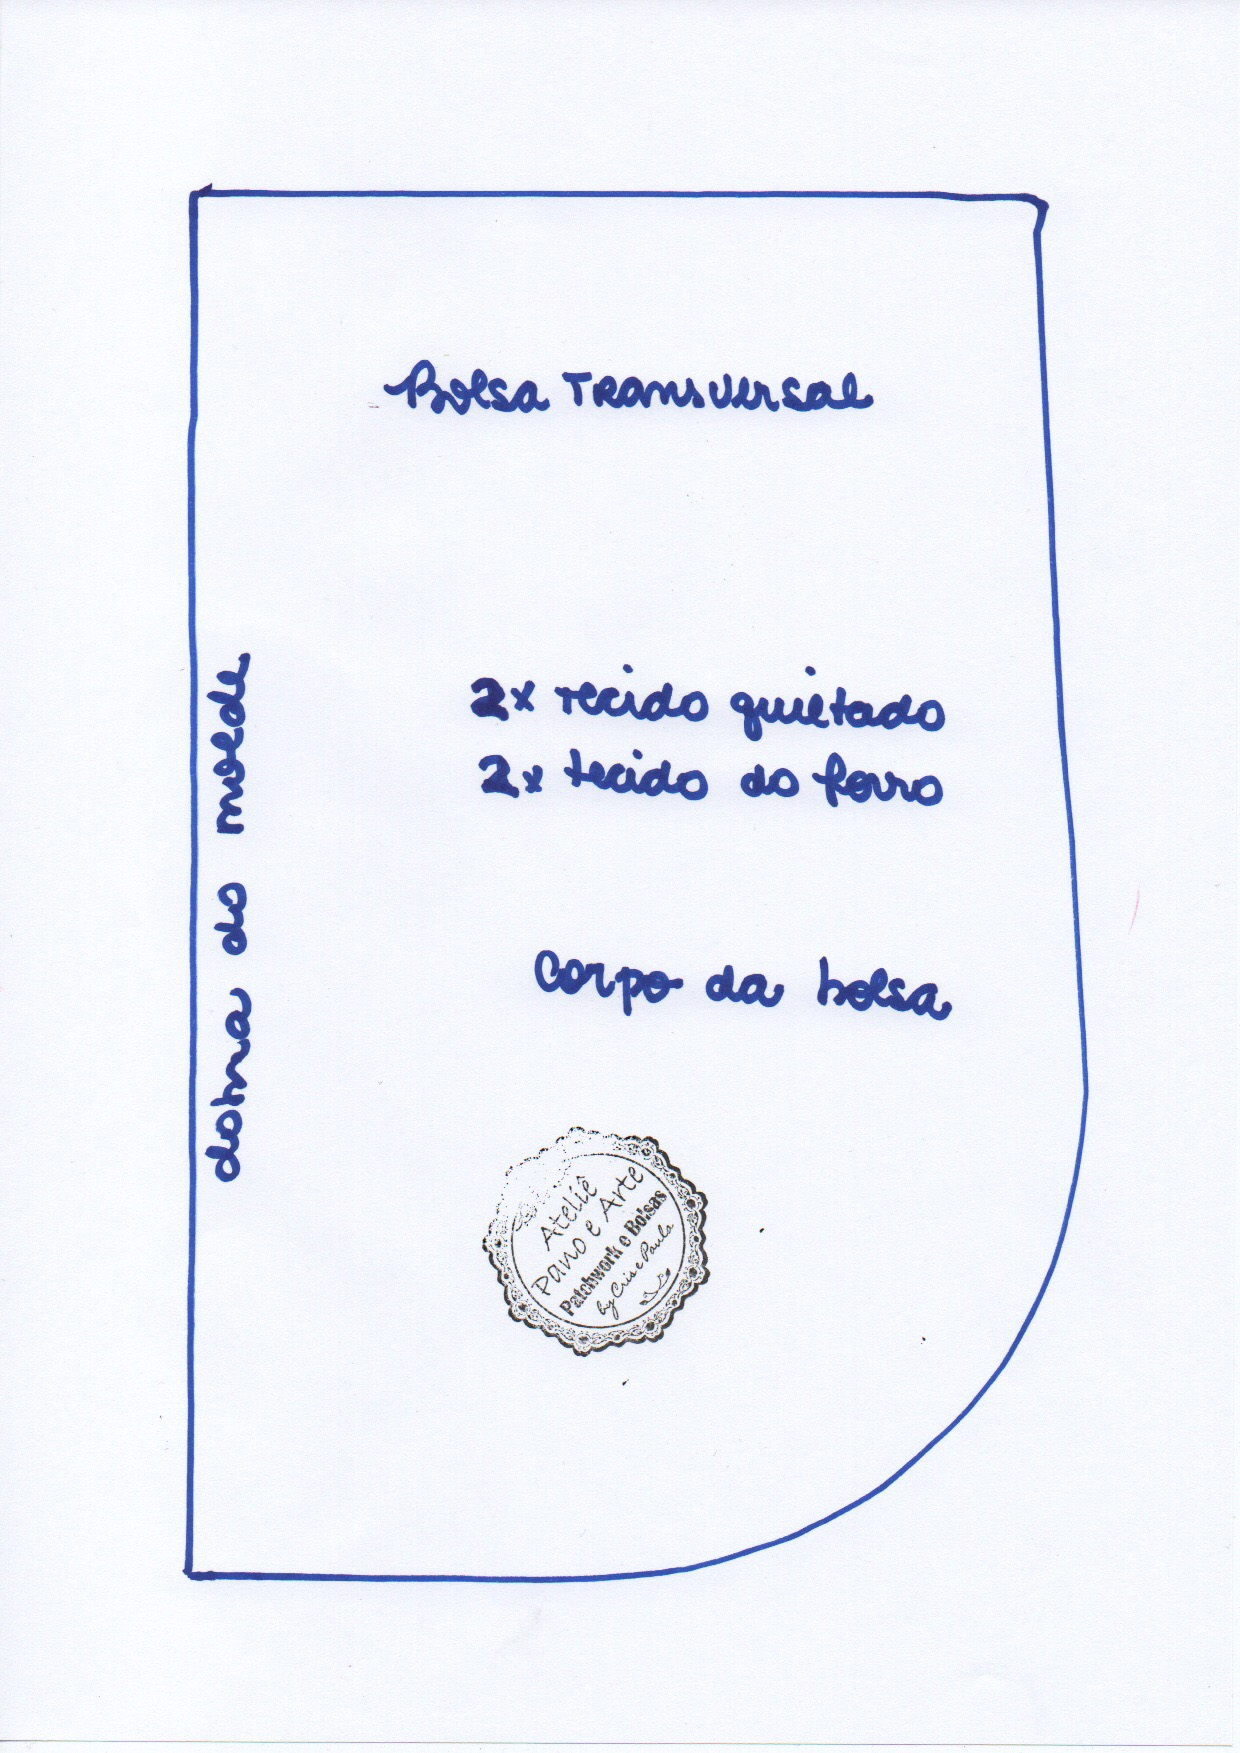 Bolsa Transversal
2x tecido quiltado
2x tecido do forro
dobra do molde
Corpo da bolsa
Ateliê
Pano e Arte
Patchwork e Bolsas
by Cris e Paula